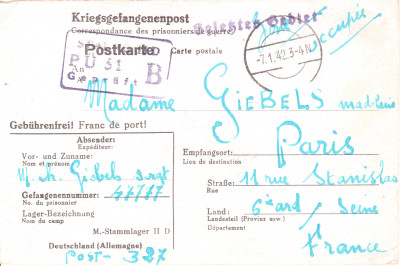 Kriegsgefangenenpost
Correspondance des prisonniers de guerre
Besetztes Gebiet
Zone occupée
Postkarte Carte postale
An
PU 51
Geprüft B
-7.1.42.3-4N
Madame GIEBELS Madeleine
Gebührenfrei! Franc de port!
Absender:
Expéditeur:
Vor- und Zuname:
Nom et prénom
M. A. Giebels sergt
Gefangenennummer: 47777
No. du prisonnier
Lager-Bezeichnung
Nom du camp
M.-Stammlager II D
Deutschland (Allemagne)
Post - 327
Empfangsort: Paris
Lieu de destination
Straße: 11 rue Stanislas
Rue
Land: 6e ard / Seine
Landesteil (Provinz usw.)
Département
France